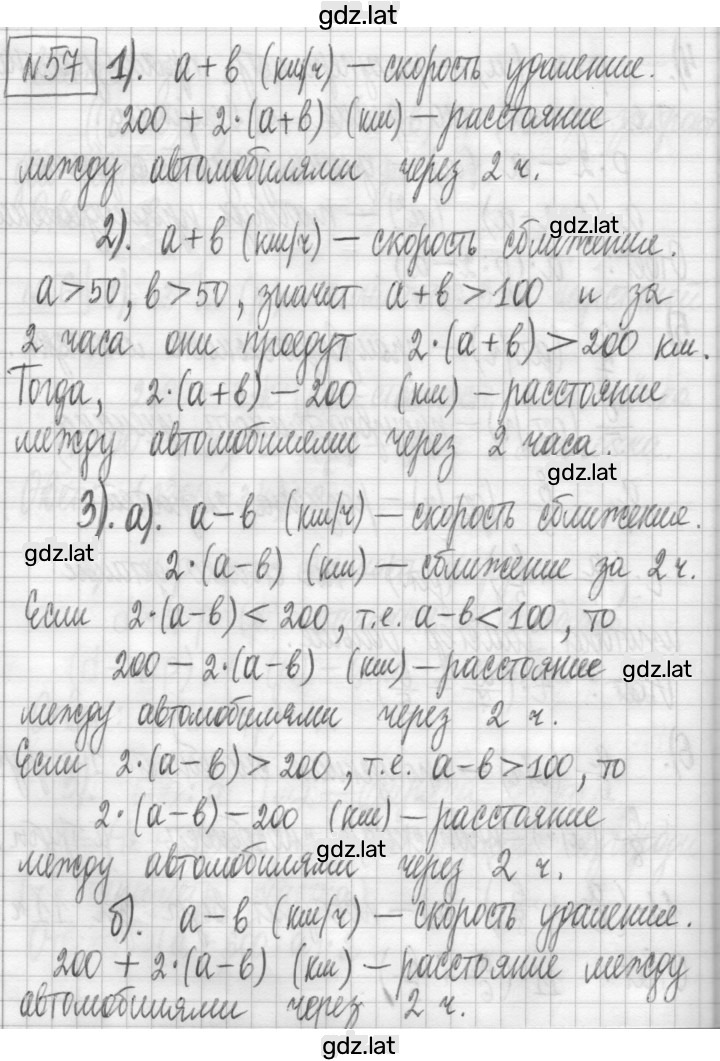 gdz.lat
№57 1). а+в (км/ч) – скорость удаление.
200 + 2·(а+в) (км) – расстояние
между автомобилями через 2 ч.
gdz.lat
2). а+в (км/ч) – скорость сближения.
а>50, в>50, значит а+в>100 и за
2 часа они проедут 2·(а+в)>200 км.
Тогда, 2·(а+в) – 200 (км) – расстояние
между автомобилями через 2 часа.
gdz.lat
3). а). а–в (км/ч) – скорость сближения.
gdz.lat
2·(а–в) (км) – сближение за 2ч.
Если 2·(а–в)<200, т.е. а–в<100, то
200 – 2·(а–в) (км) – расстояние
gdz.lat
между автомобилями через 2 ч.
Если 2·(а–в)>200, т.е. а–в>100, то
2·(а–в)–200 (км) – расстояние
gdz.lat
между автомобилями через 2 ч.
б). а–в (км/ч) – скорость удаления.
200 + 2·(а–в) (км) – расстояние между
автомобилями через 2 ч.
gdz.lat